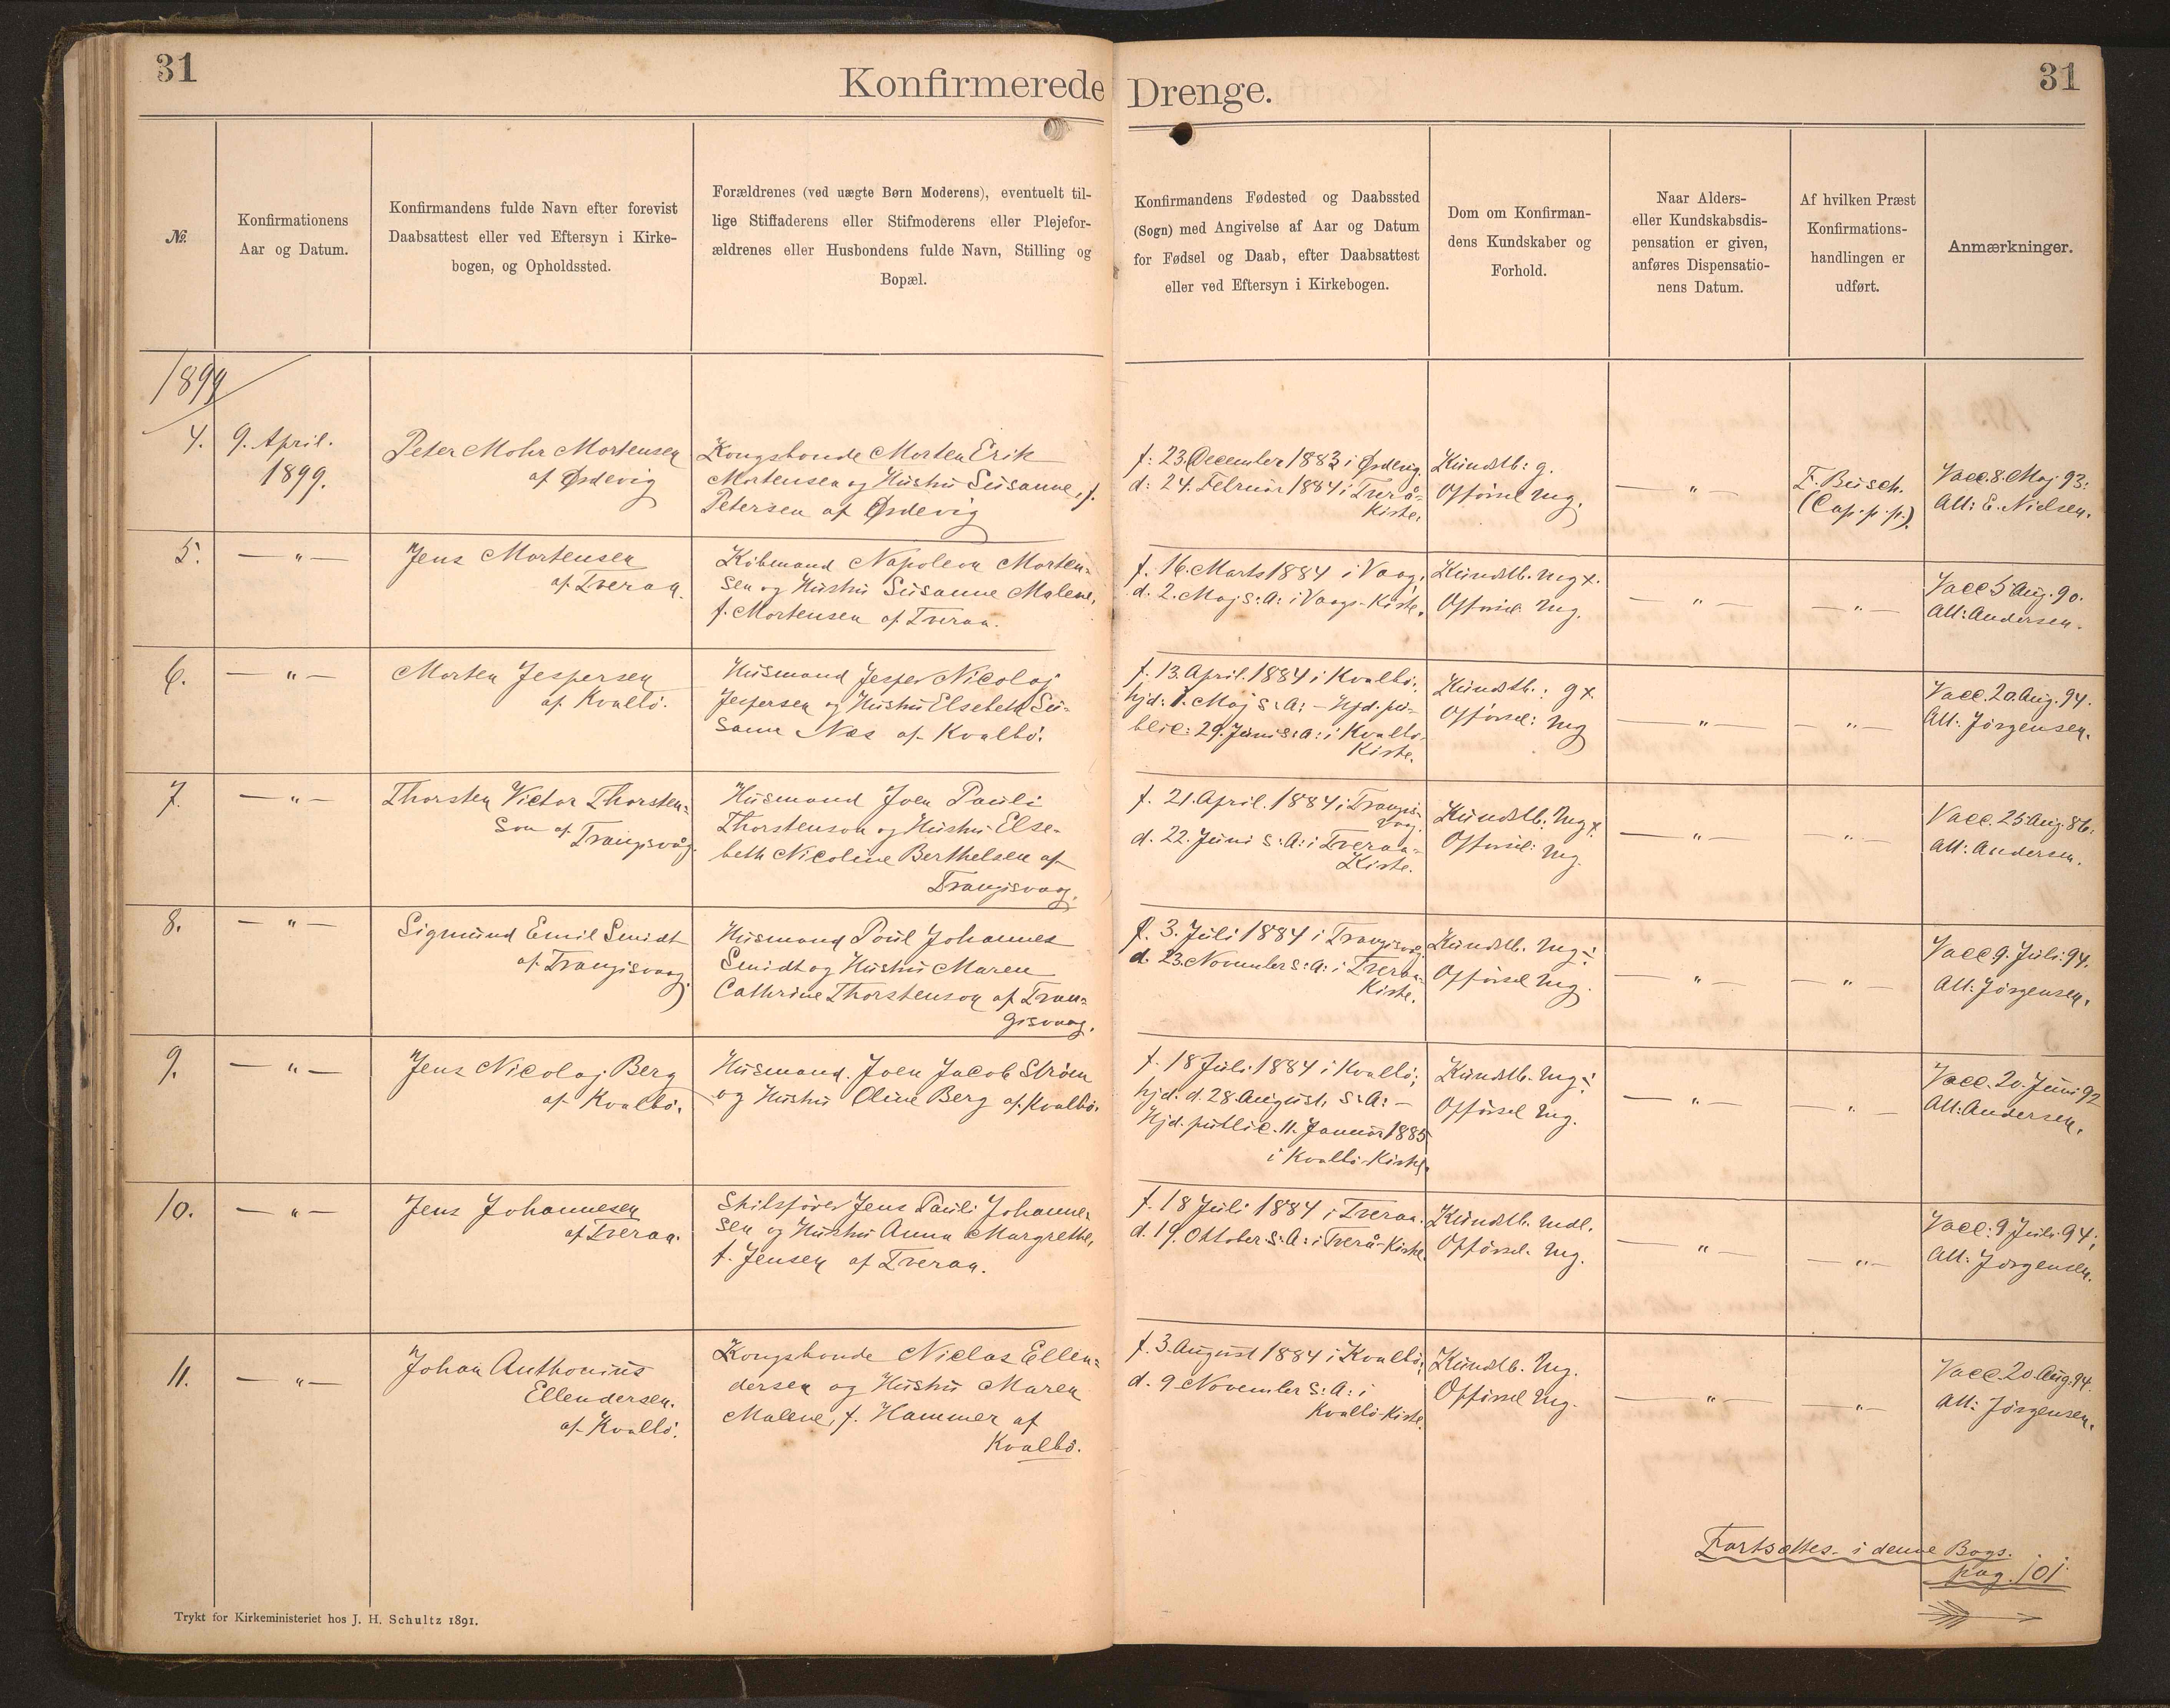 31
Konfirmerede Drenge.
31
№.
Konfirmationens
Aar og Datum.
Konfirmandens fulde Navn efter forevist
Daabsattest eller ved Eftersyn i Kirke-
bogen, og Opholdssted.
Forældrenes (ved uægte Børn Moderens), eventuelt til-
lige Stiffaderens eller Stifmoderens eller Plejefor-
ældrenes eller Husbondens fulde Navn, Stilling og
Bopæl.
Konfirmandens Fødested og Daabssted
(Sogn) med Angivelse af Aar og Datum
for Fødsel og Daab, efter Daabsattest
eller ved Eftersyn i Kirkebogen.
Dom om Konfirman-
dens Kundskaber og
Forhold.
Naar Alders-
eller Kundskabsdis-
pensation er given,
anføres Dispensatio-
nens Datum.
Af hvilken Præst
Konfirmations-
handlingen er
udført.
Anmærkninger.
1899
4.
9. April.
1899.
Peter Mohr Mortensen
af Ørdevig
Kongsbonde Morten Erik
Mortensen og Hustru Susanne, f.
Petersen af Ørdevig
f: 23. December 1883 i Ørdevig.
d: 24. Februar 1884 i Tverå-
Kirke.
Kundsk: g.
Opførsel mg.
— " —
F. Busch.
(Cap. p. p.).
Vacc. 8. Maj 93:
Att: E. Nielsen.
5.
— " —
Jens Mortensen
af Tveraa.
Købmand Napoleon Morten-
sen og Hustru Susanne Malene,
f. Mortensen af Tveraa.
f. 16. Marts 1884 i Vaag,
d. 2. Maj s: A: i Vaags-Kirke.
Kundsk. mg x.
Opførsel mg.
— " —
— " —
Vacc 5 Aug. 90.
Att: Andersen.
6.
— " —
Morten Jespersen
af Kvalbö.
Husmand Jesper Nicolaj
Jespersen og Hustru Elsebeth Su-
sanne Næs af Kvalbö.
f. 13. April. 1884 i Kvalbö.
hjd: 1. Maj s: A: - Hjd. pu-
blic: 29. Juni s: A: i Kvalbö-
Kirke.
Kundsk.: g x.
Opførsel: mg
— " —
— " —
Vacc. 20. Aug. 94.
Att: Jörgensen.
7.
— " —
Thorsten Victor Thorsten-
son af Trangisvåg.
Husmand Joen Pauli
Thorstenson og Hustru Else-
beth Nicoline Berthelsen af
Trangisvaag.
f. 21. April. 1884 i Trangis-
vag.
d. 22. Juni s: A: i Tveraa-
Kirke.
Kundsk. mg x.
Opførsel: mg.
— " —
— " —
Vacc. 25 Aug. 86.
Att: Andersen.
8.
— " —
Sigmund Emil Smidt
af Trangisvaag.
Husmand Poul Johannes
Smidt og Hustru Maren
Cathrine Thorstenson af Tran-
gisvaag.
f. 3. Juli 1884 i Trangisvåg
d. 23. November s: A: i Tveraa-
Kirke.
Kundsk. mg ÷
Opførsel mg.
— " —
— " —
Vacc 9. Juli. 94.
Att: Jörgensen.
9.
— " —
Jens Nicolaj Berg
af Kvalbö.
Husmand Joen Jacob Ström
og Hustru Oline Berg af Kvalbö.
f. 18 Juli 1884 i Kvalbö;
hjd. d. 28. August. s: A: -
Hjd. public. 11. Januar 1885
i Kvalbö-Kirke.
Kundsk. mg ÷
Opførsel mg.
— " —
— " —
Vacc. 20. Juni 92
Att: Andersen.
10.
— " —
Jens Johannesen
af Tveraa.
Skibsfører Jens Pauli Johanne-
sen og Hustru Anna Margrethe,
f. Jensen af Tveraa.
f. 18 Juli 1884 i Tveraa.
d. 19. Oktober s: A: i Tverå-Kirke.
Kundsk. mdl.
Opførsel. mg.
— " —
— " —
Vacc: 9 Juli. 94;
Att: Jörgensen.
11.
— " —
Johan Anthonius
Ellendersen.
af Kvalbö.
Kongsbonde Niclas Ellen-
dersen og Hustru Maren
Malene, f. Hammer af
Kvalbö.
f. 3. August 1884 i Kvalbö;
d. 9 November s: A: i
Kvalbö-Kirke.
Kundsk. mg.
Opførsel mg.
— " —
— " —
Vacc. 20. Aug. 94.
Att: Jörgensen.
Fortsættes i denne Bogs.
pag. 101
Trykt for Kirkeministeriet hos J. H. Schultz 1891.